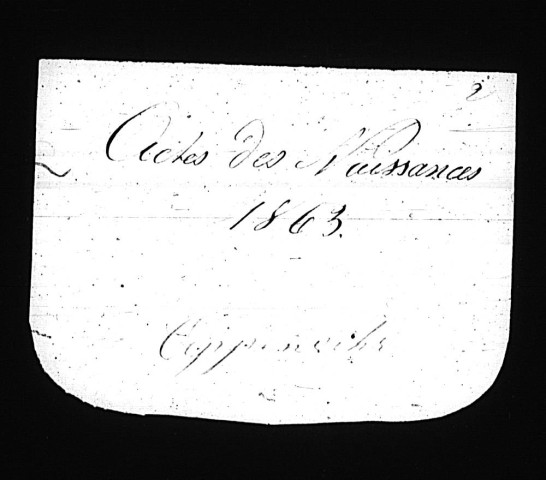 2
Actes des Naissances
1863.
Eppenwihr